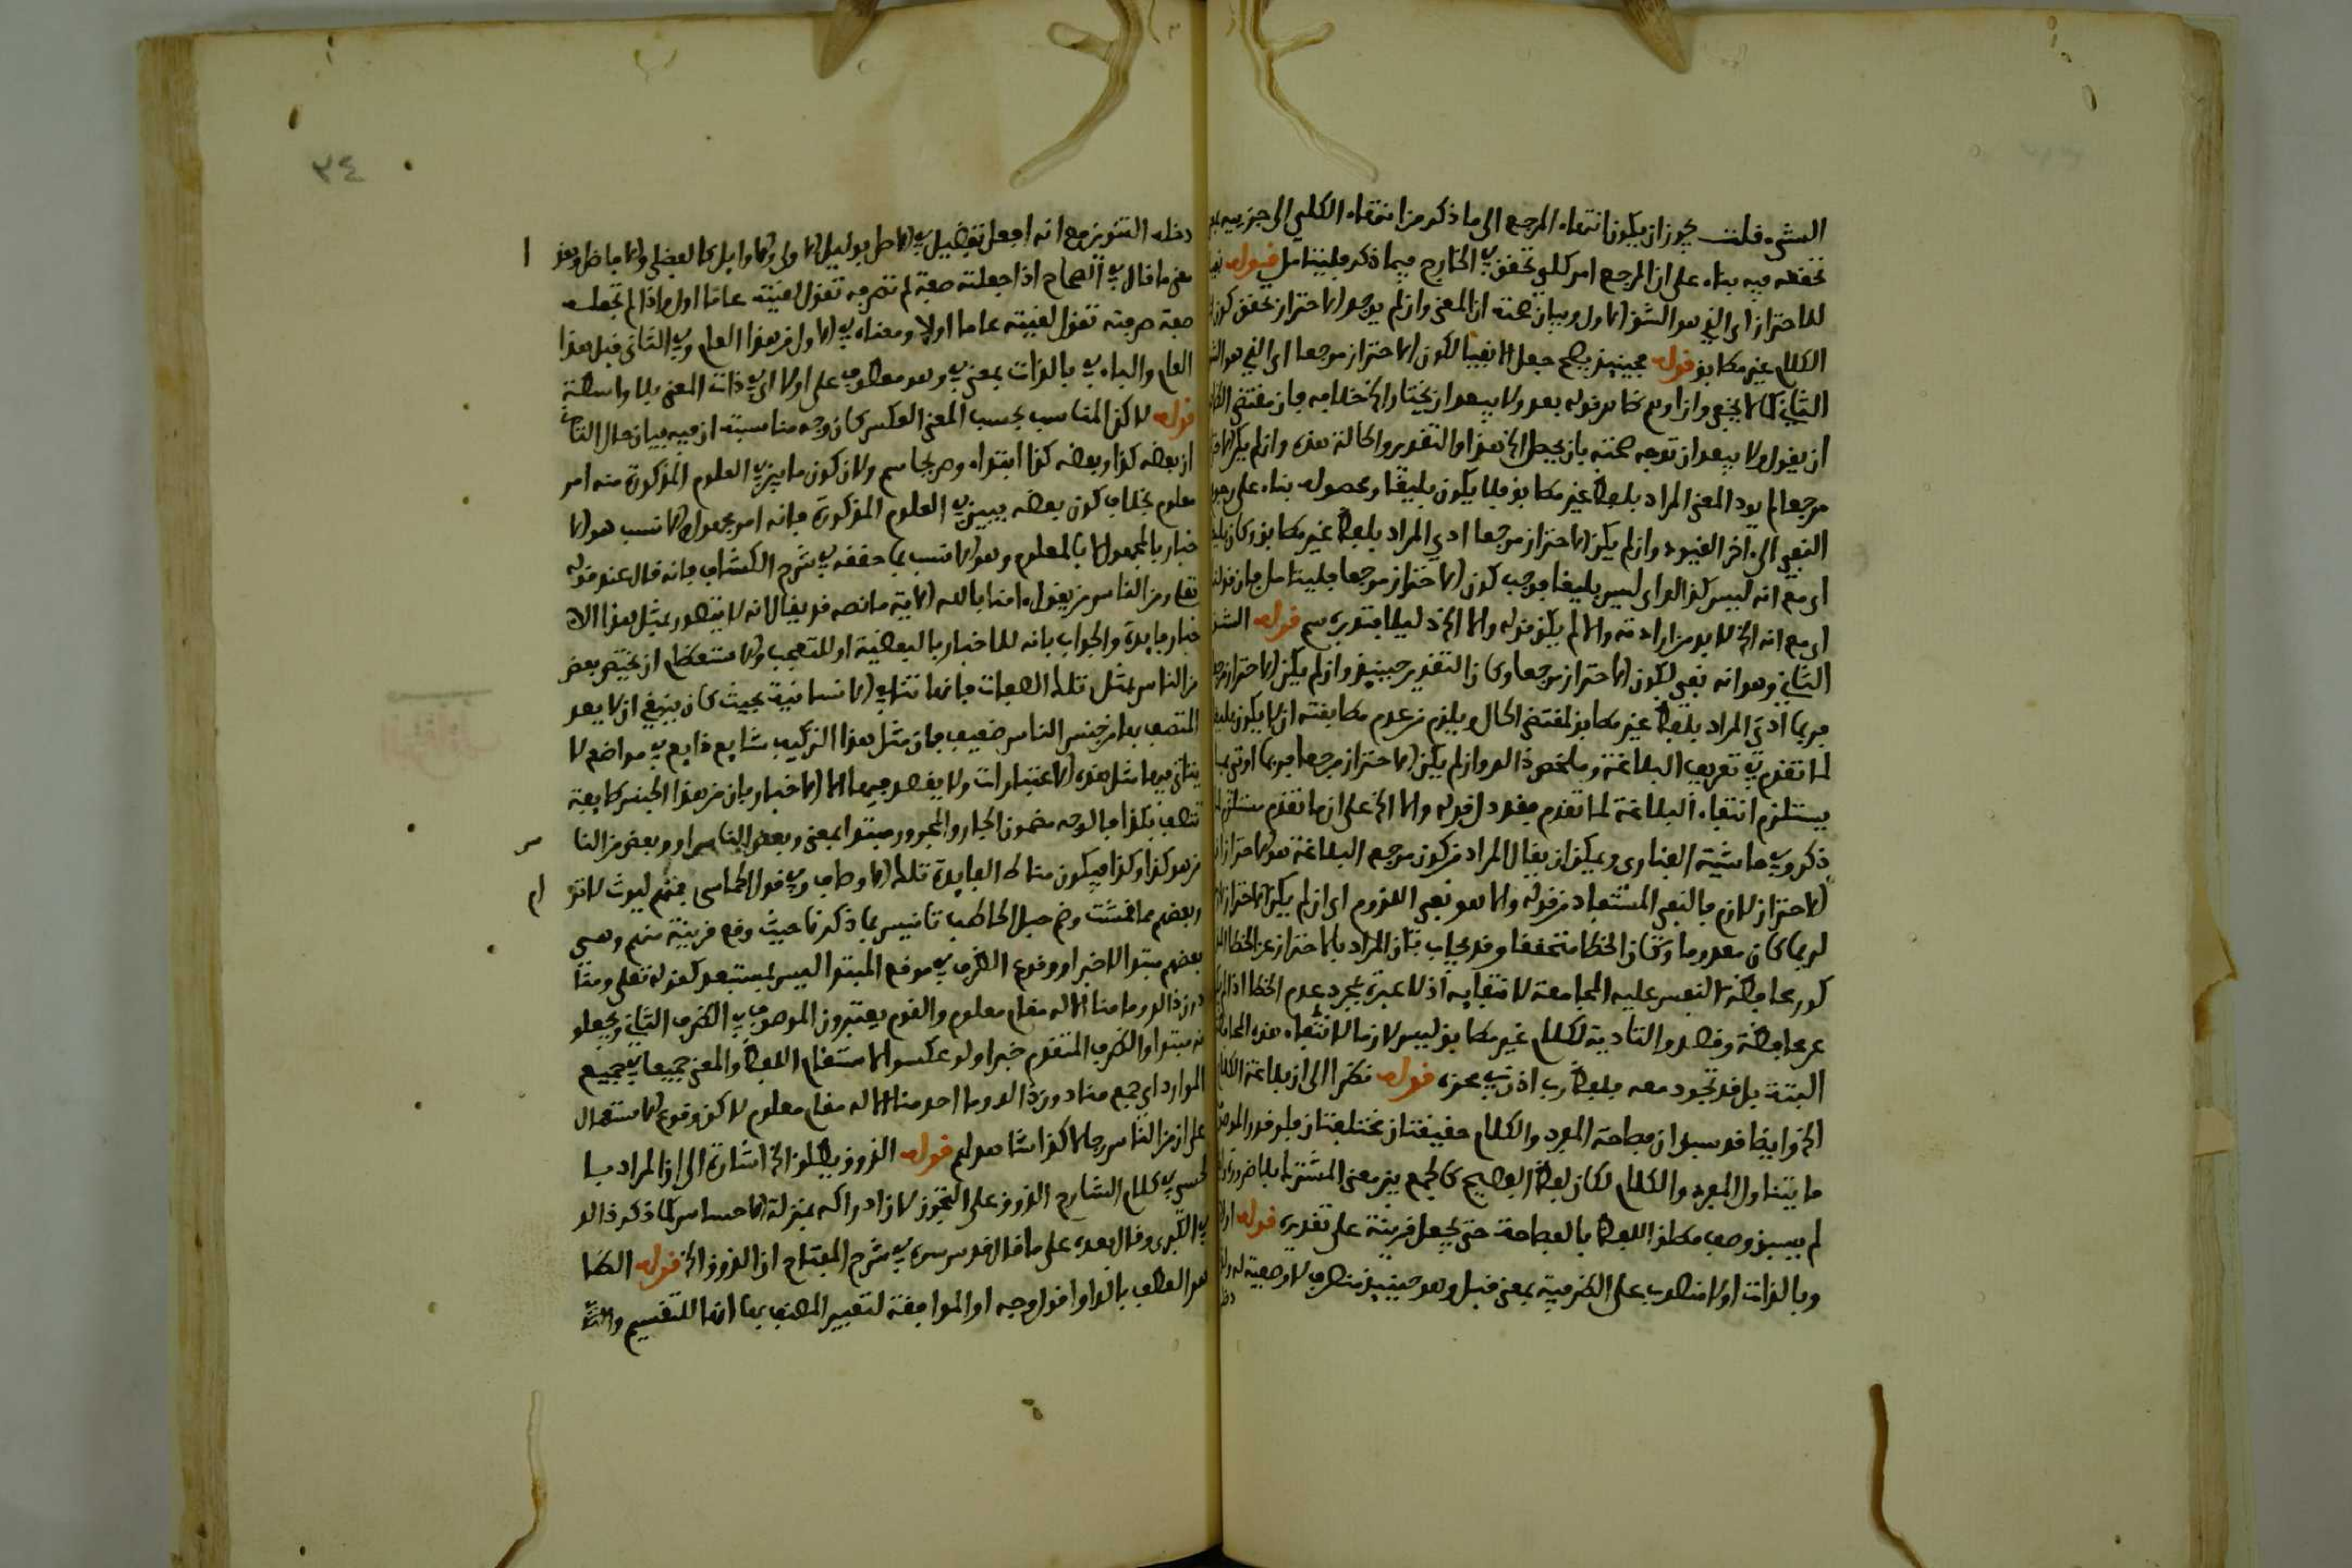 الشيء قلت يجوز ان يكون انتفاء المرجع الى ما ذكر من انتفاء الكلي الى جزييه
تحققه فيه بناء على ان المرجع امر كلي تحقق في الخارج فيما ذكر فليتامل قوله
للاحتراز اى الذي هو الشق الاول وبيان صحته ان المعنى وان لم يوجد الاحتراز تحقق كون
الكلام غير مطابق قوله فحينيذ يصح جعل الا نفيا لكون الاحتراز مرجعا اى الذي هو
الثاني كما لا يخفى وان اوهم ظاهر قوله بعد ولا يبعد ان يختار الخ خلافه فان مقتضى
ان يقول ولا يبعد ان توجه صحته بان يجعل الخ هذا والتقدير والحالة هذه وان لم يكن
مرجعا لم يود المعنى المراد بلفظ غير مطابق فلا يكون بليغا وحصوله بناء على رجوع
النفي الى اخر القيود وان لم يكن الاحتراز مرجعا ادي المراد بلفظ غير مطابق وكان
اى مع انه ليس كذالك اى ليس بليغا فوجب كون الاحتراز مرجعا فليتامل فان قوله
اى مع انه الخ لا بد من ارادته والا لم يكن قوله والا الخ دليلا فتدبره سم قوله الشق
الثاني وهو انه نفي لكون الاحتراز مرجعا وكان التقدير حينيذ وان لم يكن الاحتراز
فربما ادي المراد بلفظ غير مطابق لمقتضى الحال ويلزم من عدم مطابقته ان لا يكون
لما تقدم في تعريف البلاغة وملخص ذالك وان لم يكن الاحتراز مرجعا فربما
يستلزم انتفاء البلاغة لما تقدم فقد دل قوله والا الخ على ان ما تقدم مستلزم
ذكره في حاشية الفنارى ويمكن ان يقال المراد من كون مرجع البلاغة هو الاحتراز
الاحتراز لازم فالنفي المستفاد من قوله والا هو نفي اللزوم اى ان لم يكن الاحتراز
لربما كان معدوما وكان الخطا متحققا وقد يجاب بان المراد بالاحتراز عن الخطا
كور محافظة النفس عليه المجامعة لانتفايه اذ لا عبرة بمجرد عدم الخطا اذا لم
عن محافظة وقصد والتادية لكلام غير مطابق ليس لازما لانتفاء هذه
البتة بل قد تجود معه فلفظ رب اذن في محزه قوله نظرا الى ان بلاغة الكلام
الخ وايضا قد سبق ان فصاحة المفرد والكلام حقيقتان مختلفتان فلو قدر
ما يتناول المفرد والكلام لكان لفظ الفصيح كالجمع بين معنى المشترك بلا ضرورة
لم يسبق وصف مطلق اللفظ بالفصاحة حتى يجعل قرينة على تقديره قوله
وبالذات اولا منصوب على الظرفية بمعنى قبل وهو حينيذ منصرف لا وصفية له
دخله
٣٤
دخله التنوين مع انه افعل تفضيل في الاصل بدليل الاولى والاوايل كالفضلى والافاضل وهذا
معنى ما قال في الصحاح اذا جعلته صفة لم تصرفه تقول لقيته عاما اول واذا لم تجعله
صفة صرفته تقول لقيته عاما اولا ومعناه في الاول من هذا العام وفي الثاني قبل هذا
العام والباء في بالذات بمعنى في وهو معطوف على اولا اى في ذات المعنى بلا واسطة
قوله لاكن المناسب بحسب المعنى العكس كان وجه مناسبته ان فيه بيان حال
ان بعضه كذا وبعضه كذا ابتداء وصريحا سم ولان كون ما يبين في العلوم المذكورة منه امر
معلوم بخلاف كون بعضه يبين في العلوم المذكورة فانه امر مجهول والانسب هو الا
خبار بالمجهول لا بالمعلوم وهو الانسب بما حققه في شرح الكشاف فانه قال عند قوله
تعلى ومن الناس من يقول ءامنا بالله الاية ما نصه قد يقال لانه لا يتصور بمثل هذا الا
خبار فايدة والجواب بانه للاخبار بالبعضية او للتعجب والاستعظام ان يختص بعض
من الناس بمثل تلك الصفات فانها تنافي الانسانية بحيث كان ينبغي ان لا يعد
المتصف بها من جنس الناس ضعيف فان مثل هذا التركيب شايع ذايع في مواضع لا
يتاتى فيها مثل هذه الاعتبارات ولا يقصد فيها الا الاخبار بان من هذا الجنس طايفة
تتصف بكذا فالوجه مضمون الجار والمجرور مبتدا بمعنى وبعض الناس او وبعض من النا س
من هو كذا وكذا فيكون مناط الفايدة تلك الاوصاف وفي قول الحماسى فمنهم ليوث لا تر ام
وبعضهم مما قمشت وضم حبل الحاطب تانيس بما ذكرنا حيث وقع قرينة منهم وهي
بعضهم مبتدا لا خبر او وقوع الظرف في موقع المبتدا ليس بمستبعد كقوله تعلى ومنا
دون ذالك وما منا الا له مقام معلوم والقوم يعتبرون الموصوف في الظرف الثاني ويجعلو
نه مبتدا والظرف المتقدم خبرا ولو عكسوا لاستقام اللفظ والمعنى جميعا في جميع
الموارد اى جمع منا دون ذالك وما احد منا الا له مقام معلوم لاكن وقوع الاستعمال
على ان من الناس رجالا كذا شاهد لهم قوله الذوق يطلق الخ اشارة الى ان المراد بـ
الحسي في كلام الشارح الذوق على التجوز لان ادراكه بمنزلة الاحساس كما ذكر ذالك
في الكبرى وقال بعده على ما قال قدس سره في شرح المفتاح ان الذوق الخ قوله
هو العطف بالواو اقول وجه او الموافقة لتعبير المصنف بها انها للتقسيم